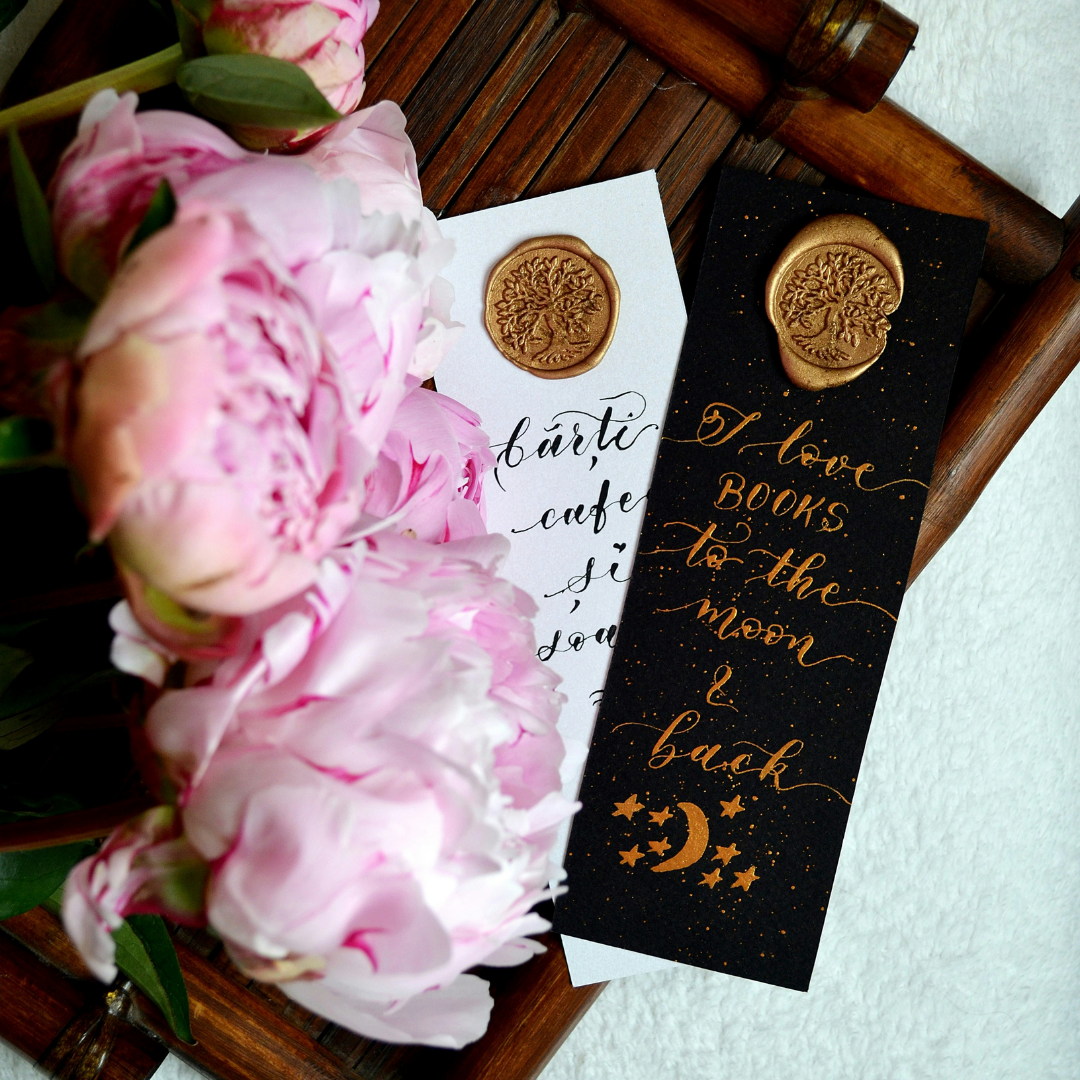 cărți
cafea
și
I love
BOOKS
to the
moon
&
back